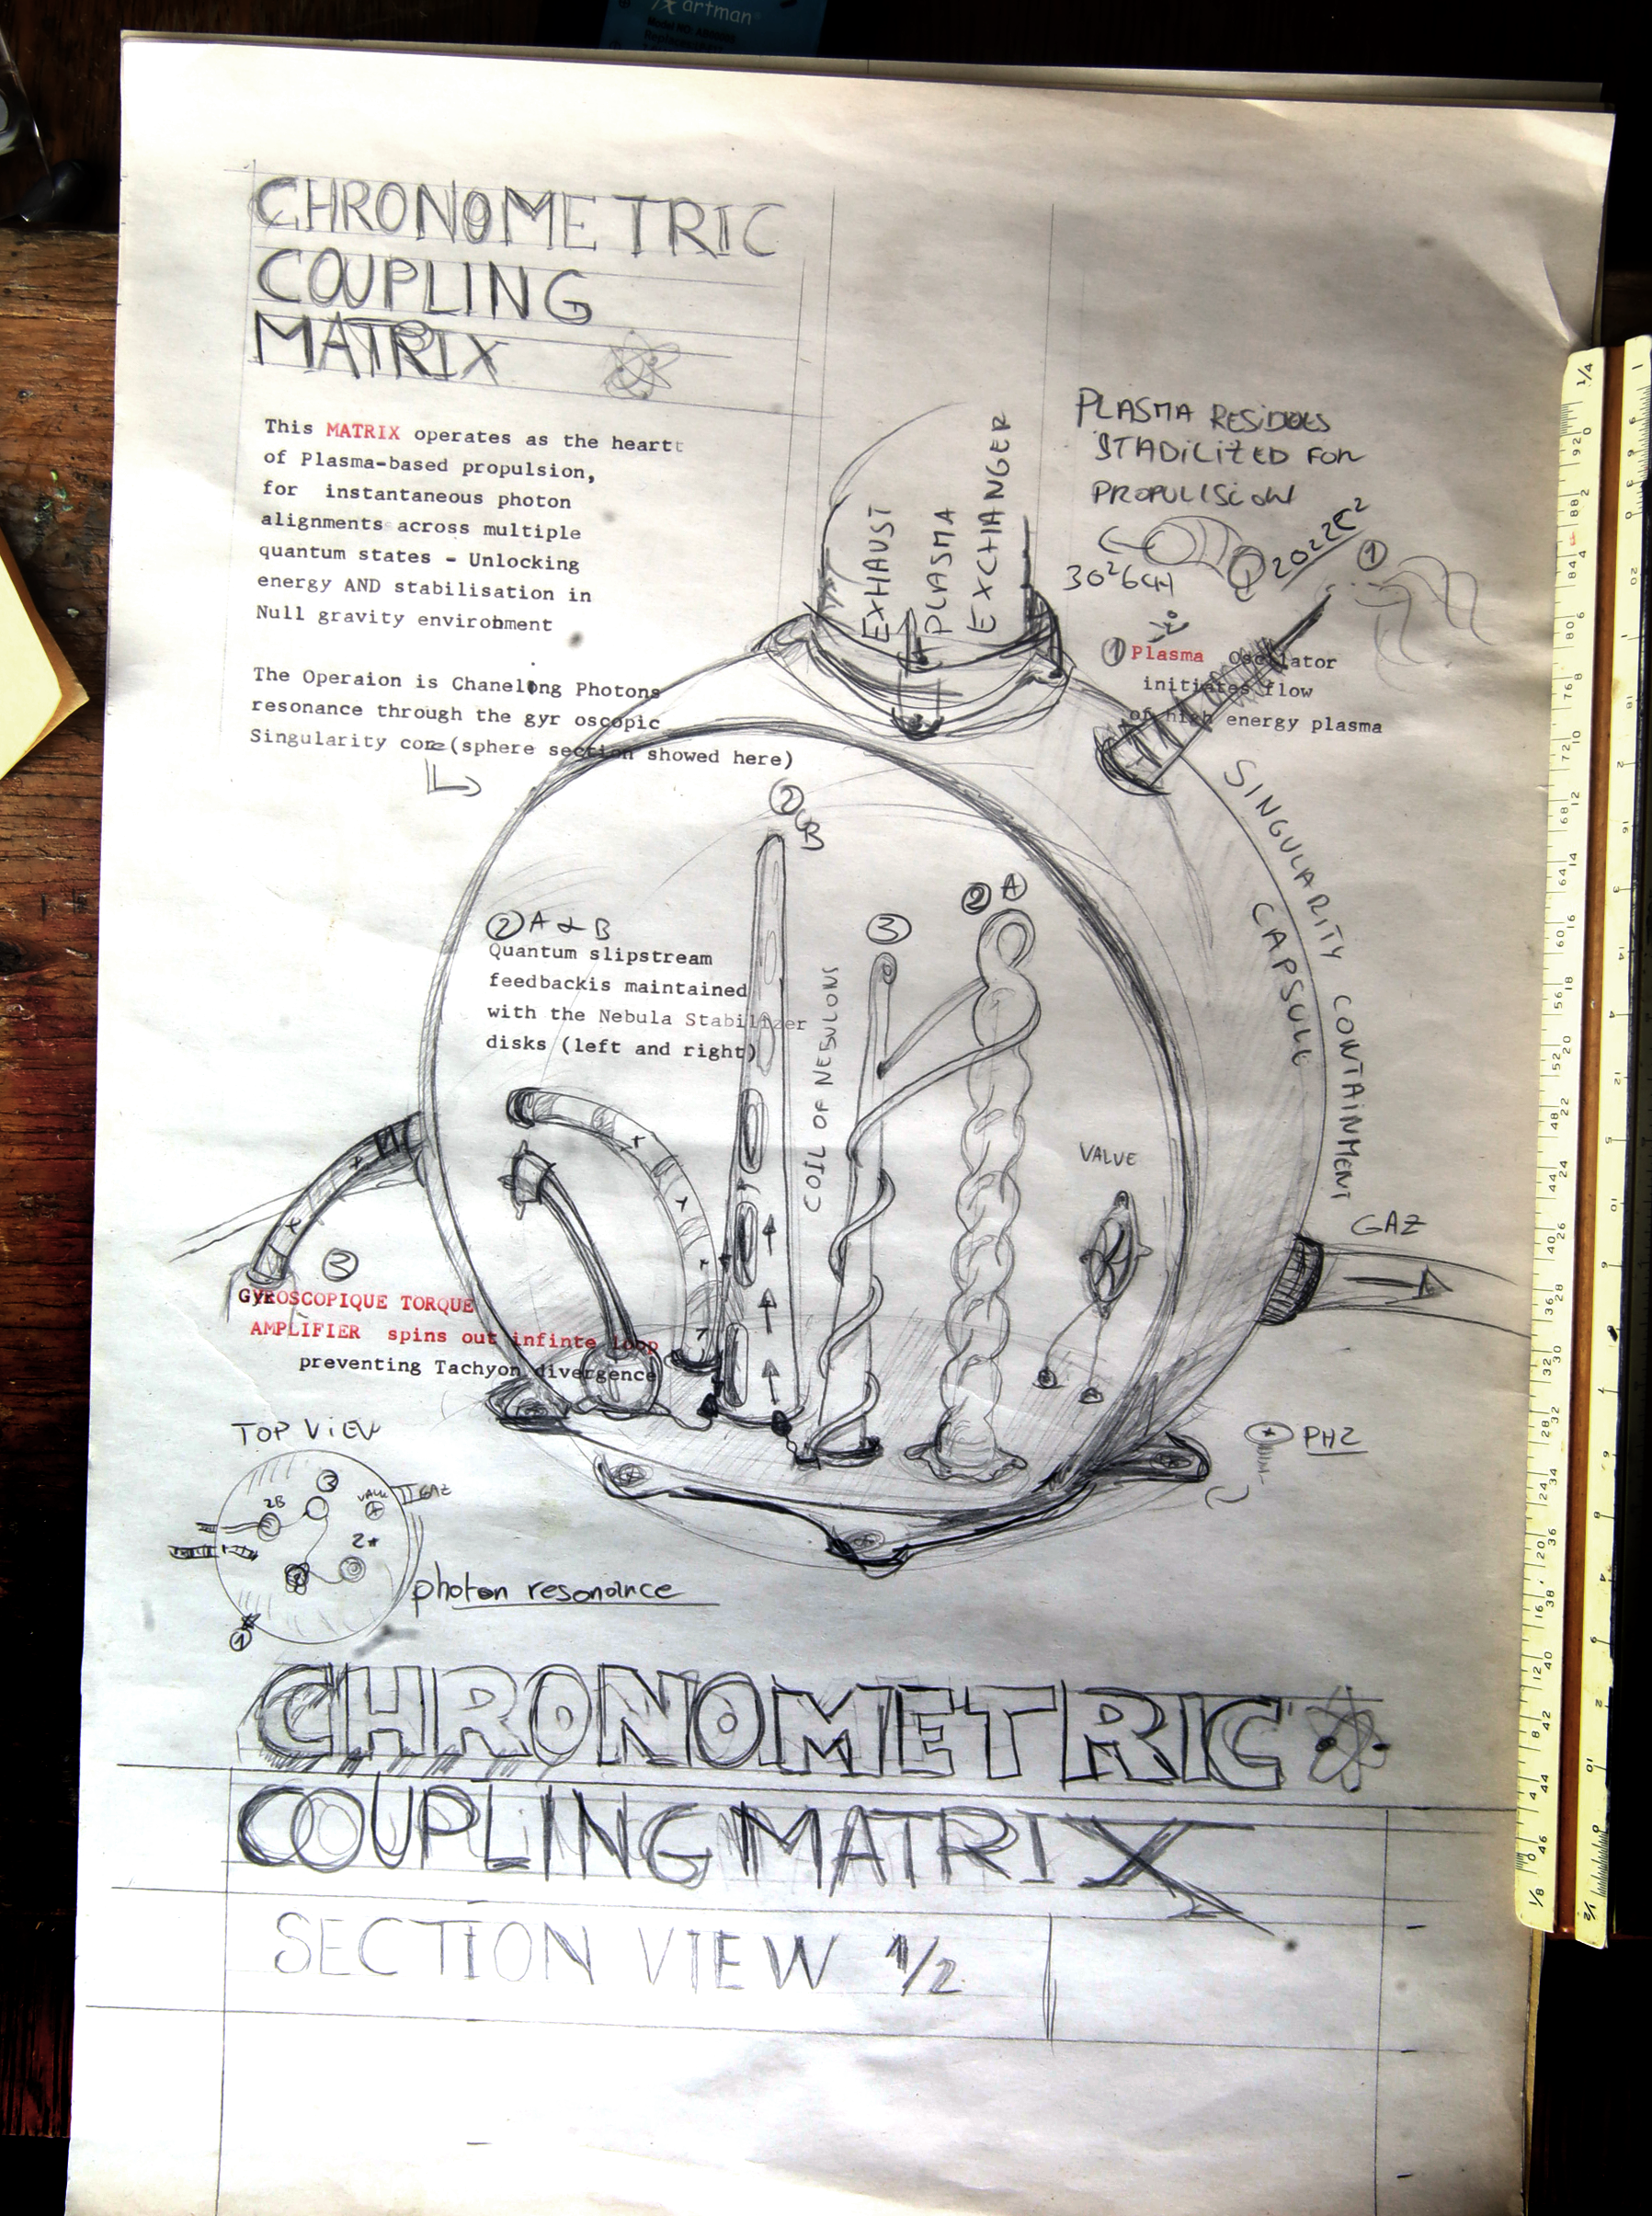 artman
CHRONOMETRIC
COUPLING
MATRIX
This MATRIX operates as the heartt
of Plasma-based propulsion,
for instantaneous photon
alignments across multiple
quantum states - Unlocking
energy AND stabilisation in
Null gravity environment
The Operaion is Chanelong Photons
resonance through the gyr oscopic
Singularity core (sphere section showed here)
EXHAUST
PLASMA
EXCHANGER
PLASMA RESIDUES
STADILIZED FOR
PROPULISION
30²6CH
2022E²
1
1 Plasma Oscillator
initiates flow
of high energy plasma
SINGULARITY CONTAINMENT
CAPSULE
2 B
3
2 A
2 A & B
Quantum slipstream
feedbackis maintained
with the Nebula Stabilizer
disks (left and right)
COIL OF NEBULONS
VALVE
GAZ
3
GYROSCOPIQUE TORQUE
AMPLIFIER spins out infinte loop
preventing Tachyon divergence
TOP VIEW
3
2B
VALVE
GAZ
1
PHZ
photon resonance
CHRONOMETRIC
COUPLING MATRIX
SECTION VIEW 1/2